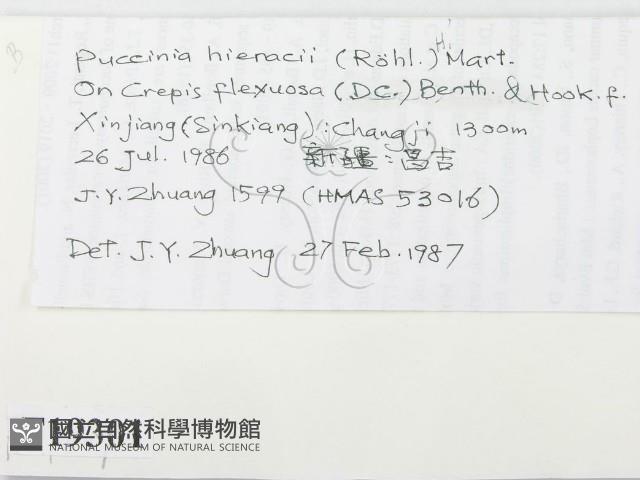 Puccinia hieracii (Röhl.) H. Mart.
On Crepis flexuosa (DC.) Benth. & Hook. f.
Xinjiang (Sinkiang): Changji 1300m
26 Jul. 1986 新疆:昌吉
J.Y. Zhuang 1599 (HMAS 53016)
Det. J.Y. Zhuang 27 Feb. 1987
國立自然科學博物館
NATIONAL MUSEUM OF NATURAL SCIENCE